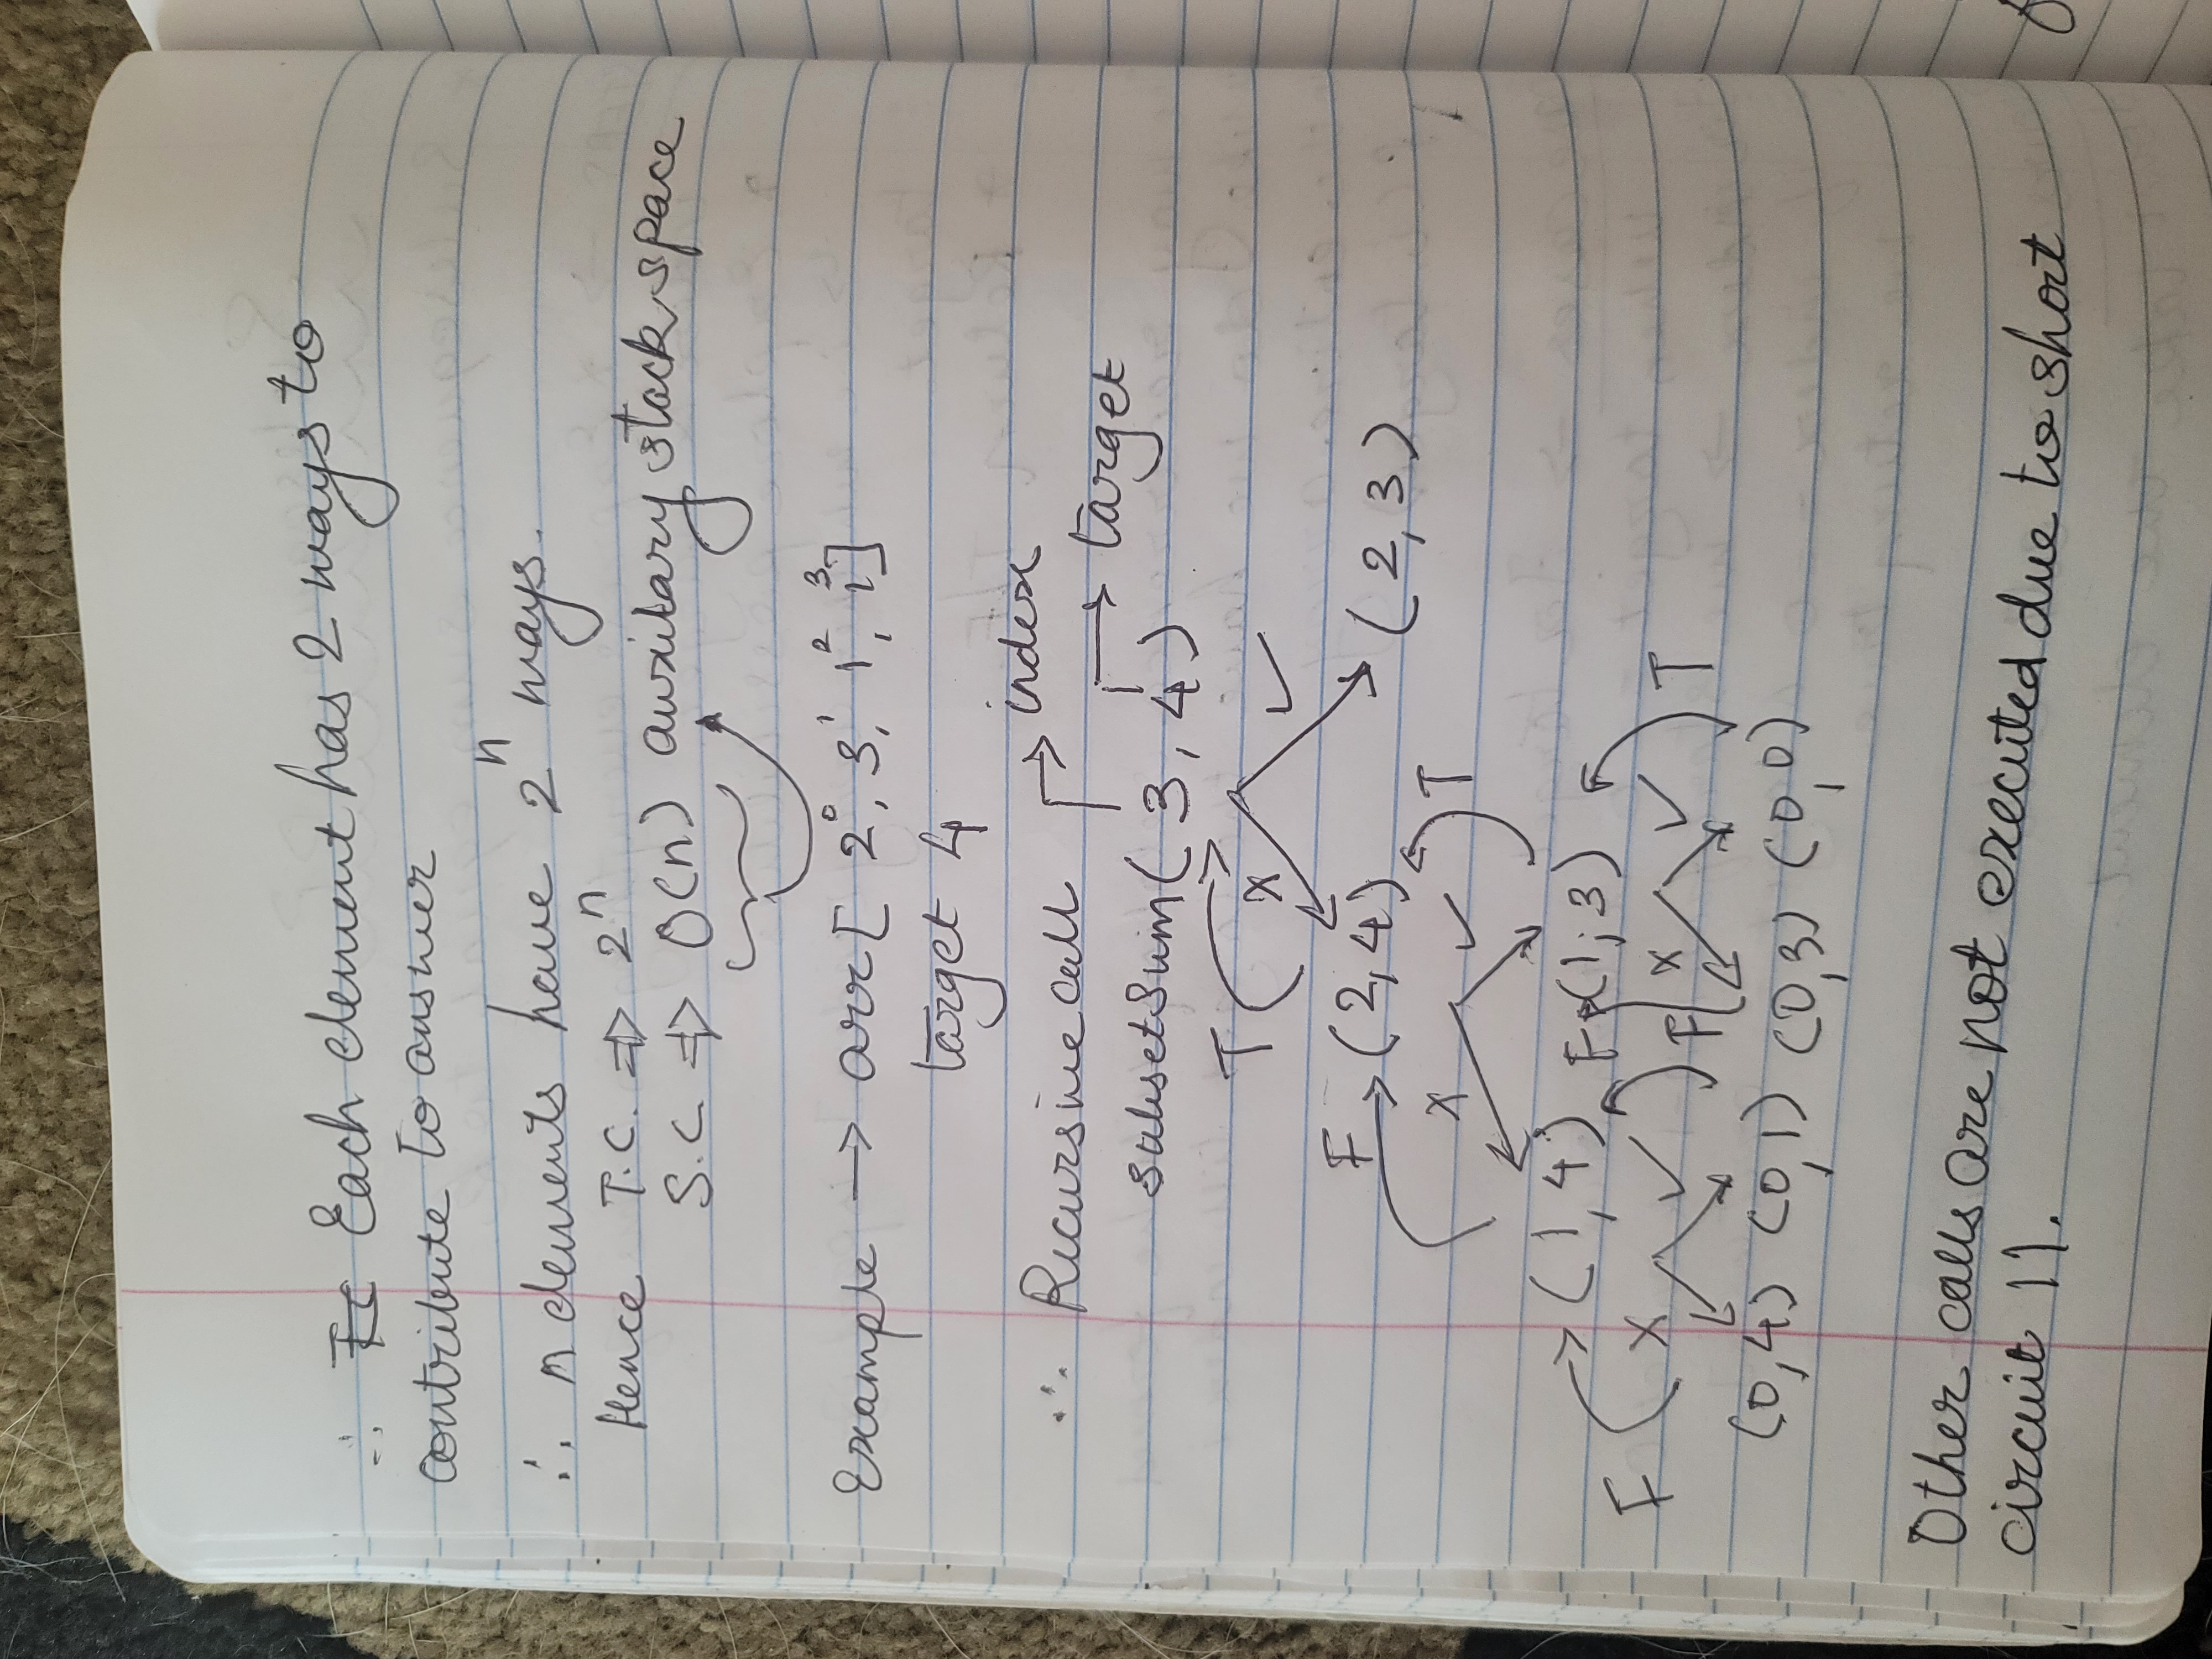 ∴ T.C Each element has 2 ways to
contribute to answer
∴ n elements have 2^n ways.
Hence T.C. ⇒ 2^n
S.C ⇒ O(n) auxilary stack space
Example → arr[ 2⁰, 3¹, 1², 1³]
target 4
∴ Recursive call → index
→ target
subsetSum( 3, 4 )
T X ✓
F (2,4) (2, 3)
X ✓ T
(1, 4) F (1, 3)
F X ✓ F X ✓ T
(0,4) (0,1) (0,3) (0,0)
Other calls are not executed due to short
circuit ||.